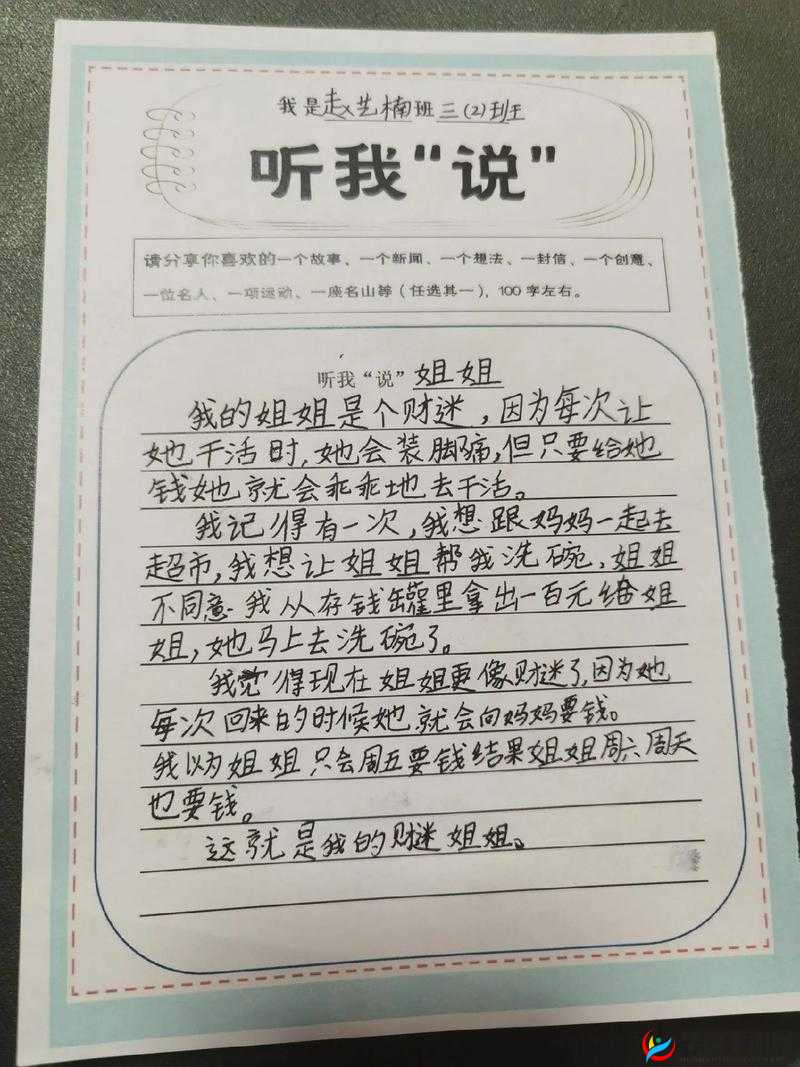 我是赵艺楠班三(2)班
听我“说”
请分享你喜欢的一个故事、一个新闻、一个想法、一封信、一个创意、
一位名人、一项运动、一座名山等（任选其一），100字左右。
听我“说”姐姐
我的姐姐是个财迷，因为每次让
她干活时，她会装脚痛，但只要给她
钱她就会乖乖地去干活。
我记得有一次，我想跟妈妈一起去
超市，我想让姐姐帮我洗碗，姐姐
不同意.我从存钱罐里拿出一百元给姐
姐，她马上去洗碗了。
我觉得现在姐姐更像财迷了，因为她
每次回来的时候她就会向妈妈要钱。
我以为姐姐只会周五要钱结果姐姐周六周天
也要钱。
这就是我的财迷姐姐。